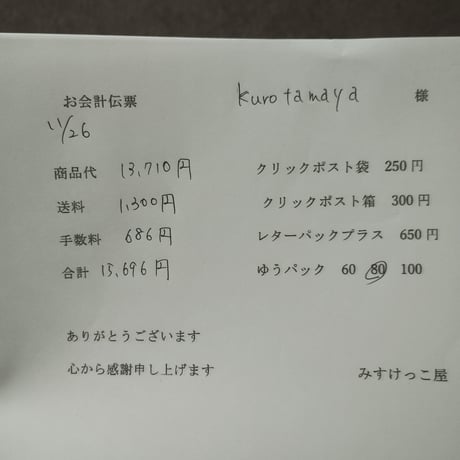 お会計伝票 kurotamaya 様
11/26
商品代 13,710円 クリックポスト袋 250円
送料 1,300円 クリックポスト箱 300円
手数料 686円 レターパックプラス 650円
合計 15,696円 ゆうパック 60 80 100
ありがとうございます
心から感謝申し上げます みすけっこ屋